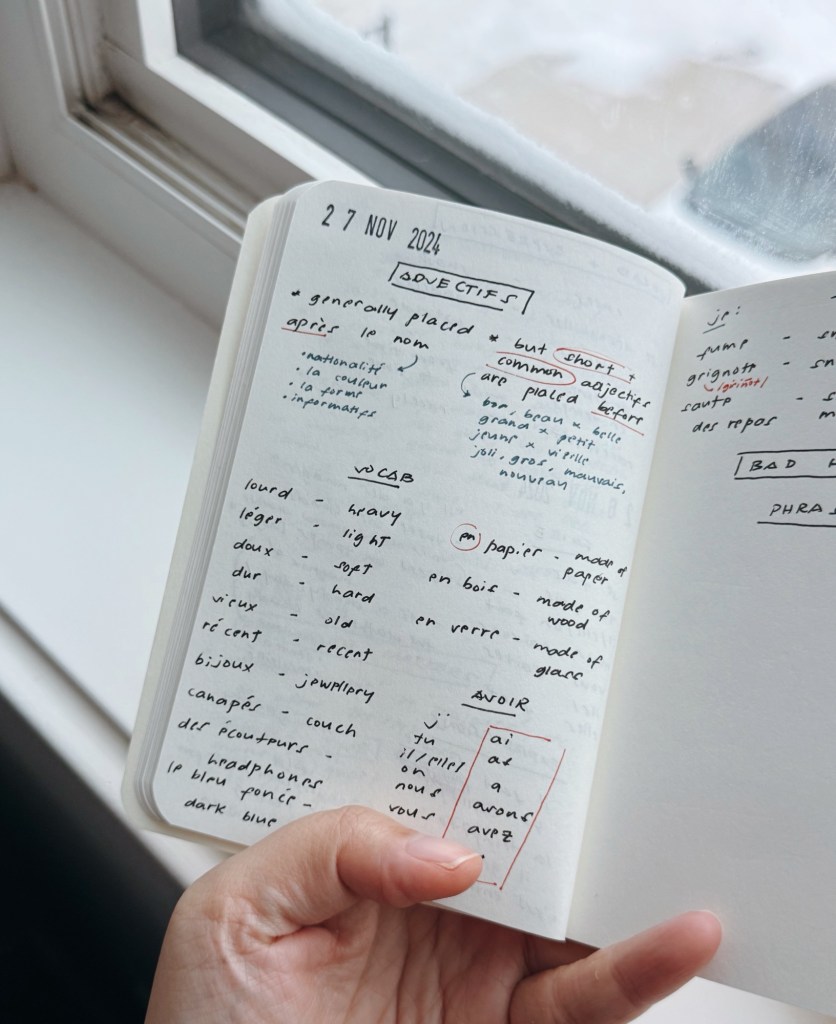 27 NOV 2024
ADJECTIFS
* generally placed
après le nom
• nationalité
• la couleur
• la forme
• informatifs
* but short +
common adjectifs
are placed before
bon, beau x belle
grand x petit
jeune x vielle
joli, gros, mauvais,
nouveau
VOCAB
lourd - heavy
léger - light
doux - soft
dur - hard
vieux - old
récent - recent
bijoux - jewellery
canapés - couch
des écouteurs -
headphones
le bleu foncé -
dark blue
en papier - made of
paper
en bois - made of
wood
en verre - made of
glass
AVOIR
j' ai
tu as
il/elle/
on a
nous avons
vous avez
je:
fume -
grignote -
saute -
des repas
BAD
PHRAS